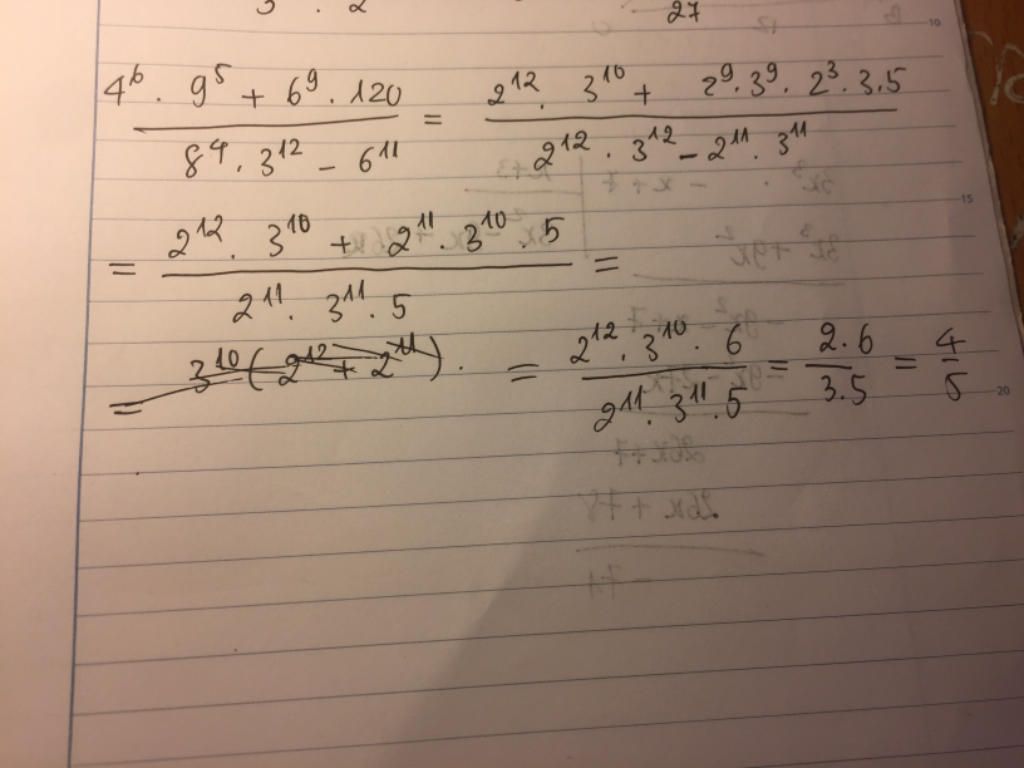 3 . 2 27
10
4^6 . 9^5 + 6^9 . 120 / 8^4 . 3^12 - 6^11 = 2^12 . 3^10 + 2^9 . 3^9 . 2^3 . 3 . 5 / 2^12 . 3^12 - 2^11 . 3^11
15
= 2^12 . 3^10 + 2^11 . 3^10 . 5 / 2^11 . 3^11 . 5 =
= 3^10 ( 2^12 + 2^11 ) . = 2^12 . 3^10 . 6 / 2^11 . 3^11 . 5 = 2 . 6 / 3 . 5 = 4 / 5
20